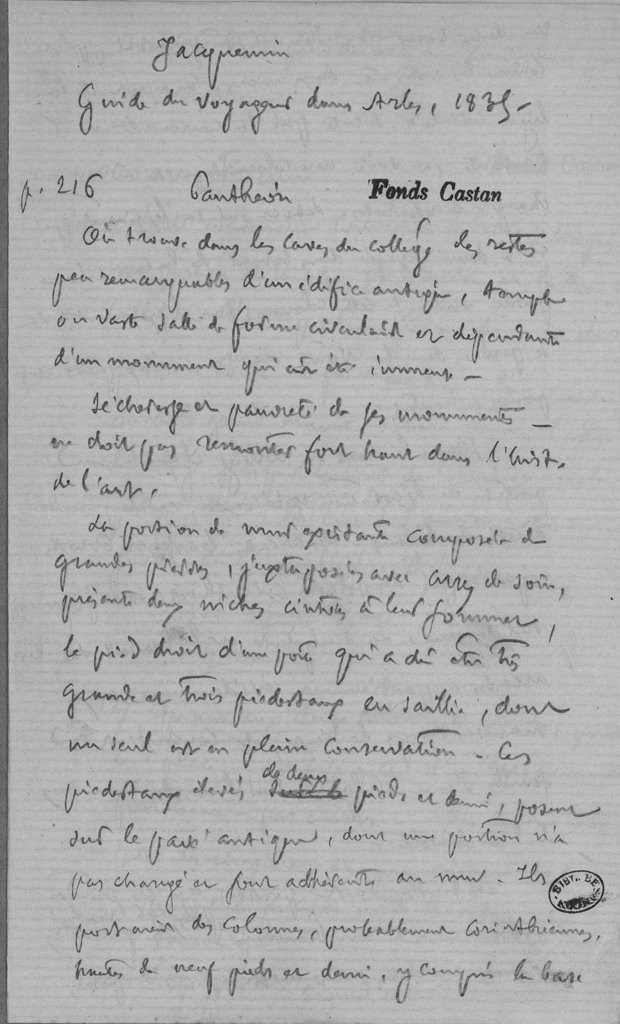 Jacquemin
Guide du voyageur dans Arles, 1835 –
p. 216 Panthéon Fonds Castan
On trouve dans les caves du collège des restes
peu remarquables d'un édifice antique, temple
ou vaste salle de forme circulaire et dépendante
d'un monument qui eût été immense –
Sécheresse et pauvreté de ses monuments –
ne doit pas remonter fort haut dans l'hist.
de l'art.
La portion de mur existante composée de
grandes pierres, juxtaposées avec assez de soin,
présente deux niches cintrées à leur sommet,
le pied droit d'une porte qui a dû être très
grande et trois piédestaux en saillie, dont
un seul est en pleine conservation – Ces
piédestaux élevés de deux pieds et demi, posent
sur le pavé antique, dont une portion n'a
pas changé et sont adhérents au mur. Ils
portaient des colonnes, probablement corinthiennes,
hautes de neuf pieds et demi, y compris la base